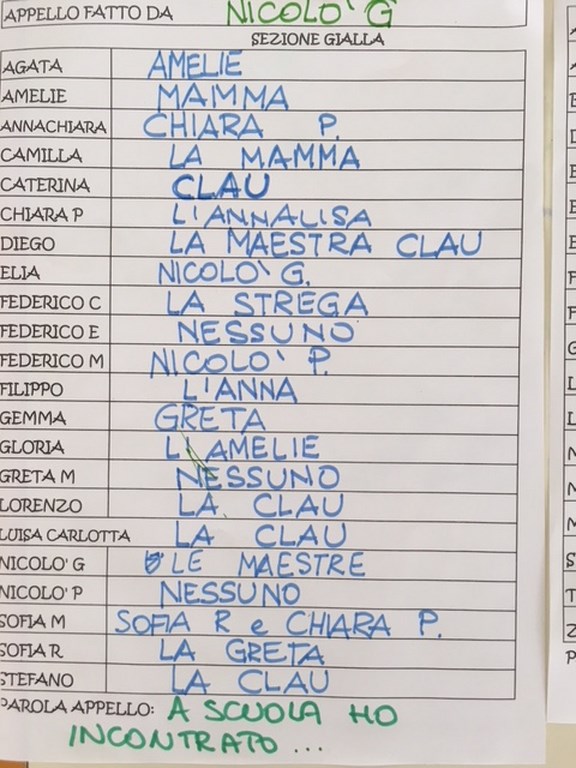 APPELLO FATTO DA NICOLO' G
SEZIONE GIALLA
AGATA AMELIE
AMELIE MAMMA
ANNACHIARA CHIARA P.
CAMILLA LA MAMMA
CATERINA CLAU
CHIARA P L'ANNALISA
DIEGO LA MAESTRA CLAU
ELIA NICOLO' G.
FEDERICO C LA STREGA
FEDERICO E NESSUNO
FEDERICO M NICOLO' P.
FILIPPO L'ANNA
GEMMA GRETA
GLORIA L'AMELIE
GRETA M NESSUNO
LORENZO LA CLAU
LUISA CARLOTTA LA CLAU
NICOLO' G LE MAESTRE
NICOLO' P NESSUNO
SOFIA M SOFIA R e CHIARA P.
SOFIA R LA GRETA
STEFANO LA CLAU
PAROLA APPELLO: A SCUOLA HO
INCONTRATO ...